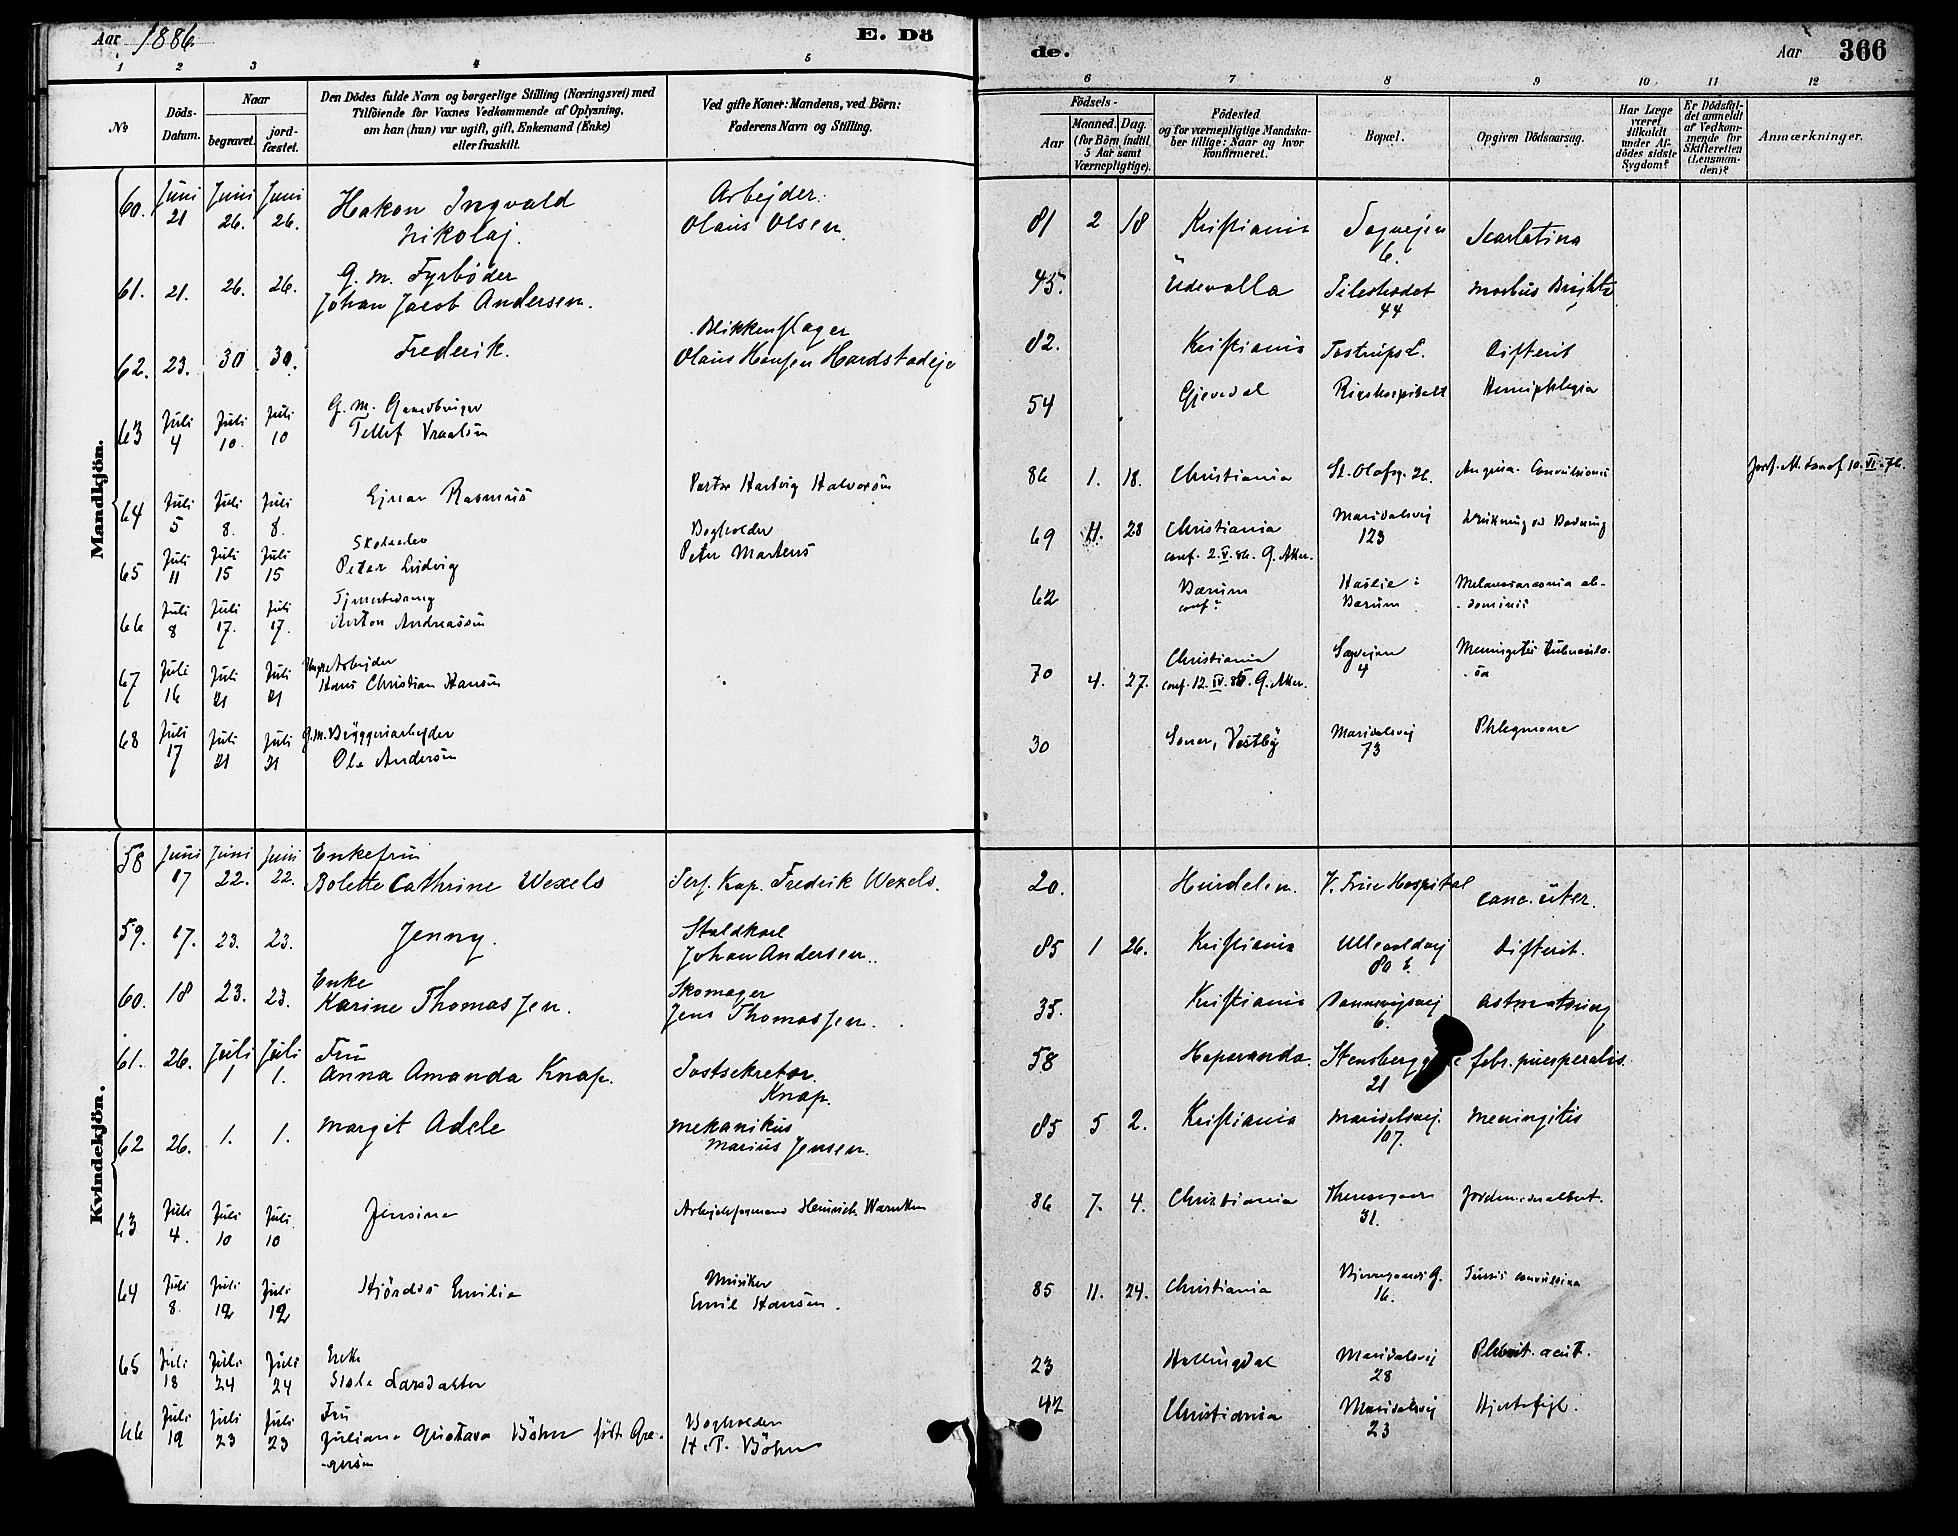 Aar 1886.
E. Dö
de.
Aar
366
1 2 3 4 5 6 7 8 9 10 11 12
No
Döds-
Datum.
Naar
begravet.
jord-
fæstet.
Den Dödes fulde Navn og borgerlige Stilling (Næringsvei) med
Tilföiende for Voxnes Vedkommende af Oplysning,
om han (hun) var ugift, gift, Enkemand (Enke)
eller fraskilt.
Ved gifte Koner: Mandens, ved Börn:
Faderens Navn og Stilling.
Födsels-
Aar
Maaned. Dag.
(for Börn indtil
5 Aar samt
Værnepligtige).
Födested
og for værnepligtige Mandska-
ber tillige: Naar og hvor
konfirmeret.
Bopæl.
Opgiven Dödsaarsag.
Har Læge
været
tilkaldt
under Af-
dödes sidste
Sygdom?
Er Dödsfal-
det anmeldt
af Vedkom-
mende for
Skifteretten
(Lensman-
den)?
Anmærkninger.
Mandkjön.
60. Juni 21 Juni 26. Juni 26. Hakon Ingvald Nikolaj. Arbejder. Olaus Olsen. 81 2 18 Kristiania Sagvejen 6. Scarlatina
61. 21. 26. 26. G. M. Fyrbøder Johan Jacob Andersen. 45. Udevalla Pilestrædet 44 Morbus Brightii
62. 23. 30 30. Frederik. Blikkenslager Olaus Hansen 82. Kristiania Tostrups L. Difterit
63 Juli 4 Juli 10. Juli 10 G. M. Gaardbruger Tellef 54 Gjevedal Rigshospitalet Hemiphlegia
64 Juli 5 Juli 8. Juli 8. Ejnar Rasmus Hartvig Halvorsen 86 1. 18. Christiania St. Olafsg. 26. Angina. Convulsioner
65 Juli 11 Juli 15 Juli 15 Peter Ludvig Bogholder Peter Martens 69 11. 28 Christiania conf. 2. V. 86. G. Aker. Maridalsvej 123 Drukning ved Badning
66 Juli 8 Juli 17. Juli 17. Anton Andreassen 62 Bærum conf? Haslie i Bærum Melanosarcoma ab- dominis
67 Juli 16 Juli 21 Juli 21 Arbejder Hans Christian Hansen 70 4. 27. Christiania conf. 12. IV. 85. G. Aker. Sagvejen 4 Meningitis tuberculo- sa
68 Juli 17 Juli 21 Juli 21 G. M. Bryggeriarbejder Ole Andersen 30 Soner, Vestby Maridalsvej 73 Phlegmone
Kvindekjön.
58 Juni 17 Juni 22. Juni 22. Enkefru Bolette Cathrine Wexels Pers. Kap. Frederik Wexels. 20. Hurdalen. V. Frue Hospital canc. uter.
59. 17. 23. 23. Jenny. Staldkarl Johan Andersen. 85 1 26. Kristiania Ullevoldvej Difterit.
60. 18 23. 23. Enke Karine Thomassen. Skomager Jens Thomassen. 35. Kristiania 6.
61. 26. Juli 1 Juli 1. Fru Anna Amanda Knap. Postsekretær Knap. 58 Haparanda. 21 febr. puerperalis.
62 26. 1. 1. Margit Adele Mekanikus Marius Jensen. 85 5 2. Kristiania Maridalsvej. 107. Meningitis
63 Juli 4. Juli 10 Juli 10 Jensine Arbejdsformand Heinrich 86 7. 4. Christiania 31.
64 Juli 8. Juli 12 Juli 12 Hjördis Emilie Musiker Emil Hansen. 85 11. 24. Christiania 16. Tussis convulsiva
65 Juli 18 Juli 24 Juli 24 Enke Larsdatter 23 Hallingdal Maridalsvej 28 acut.
66 Juli 19 Juli 23 Juli 23 Fru Juliane Gustava Böhn född Gre- gersen Bogholder H. P. Böhn 42 Christiania Maridalsvej 23 Hjertefejl.